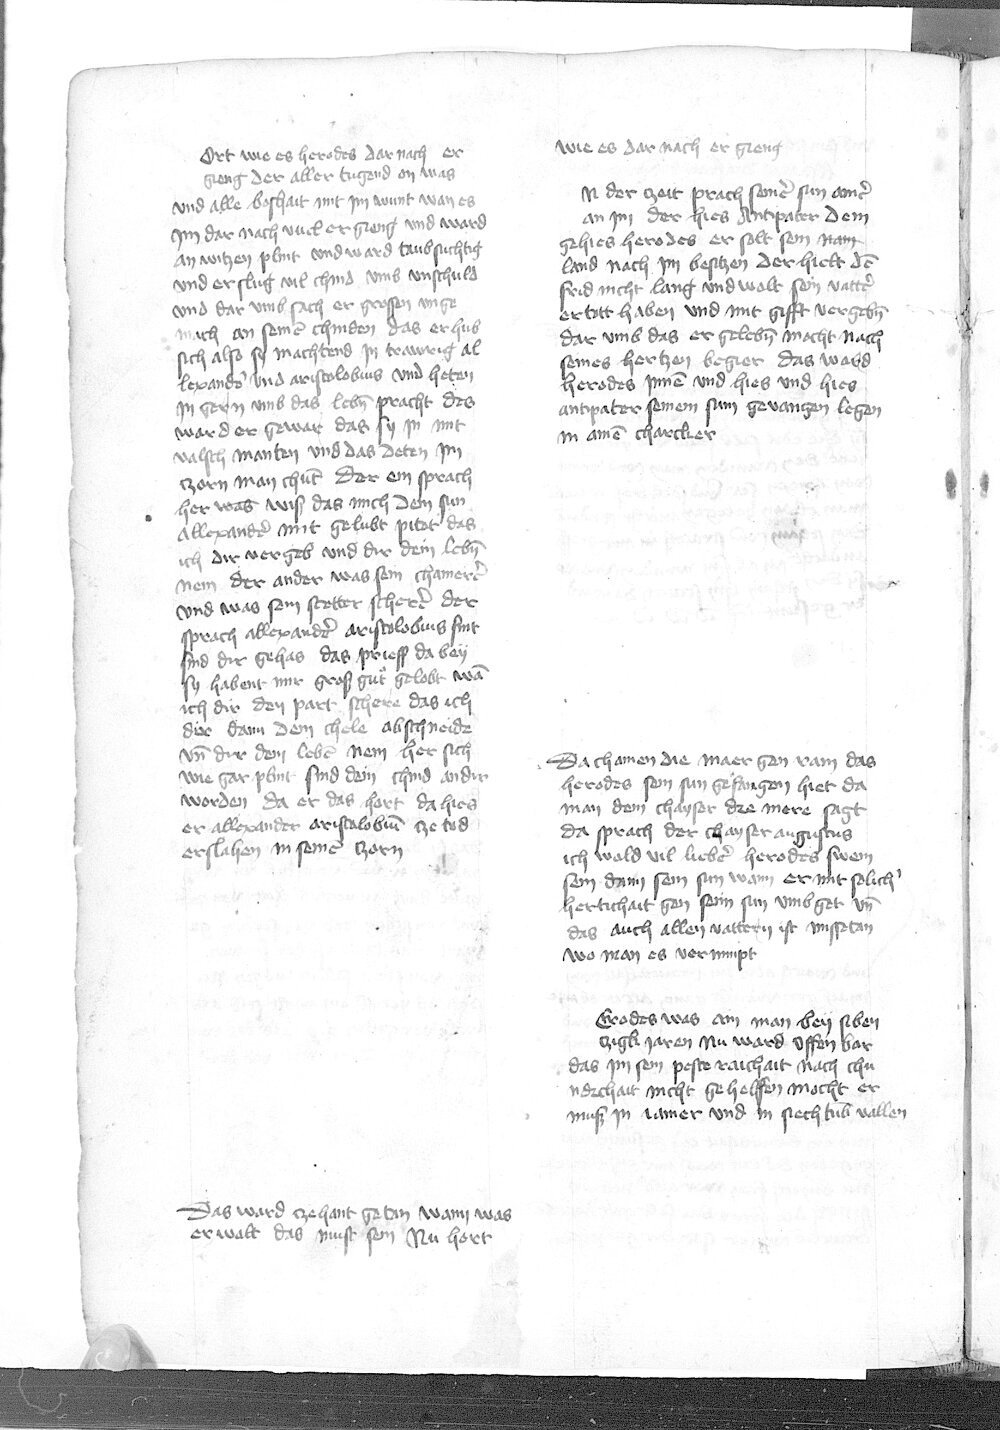 Ort wie es herodes dar nach er
gieng der aller tugend on was
vnd alle boshait mit im wunt wan es
Im dar nach vuel er gieng vnd ward
an witzen plint vnd ward taubsuchtig
vnd er slug vil chind vmb vnschuld
vnd dar vmb sach er grossen vnge
mach an seinē chinden das er hub
sich also sy machtend in trawrig al
lexandē vnd aristolobius vnd heten
in gern vmb das lebn̄ pracht des
ward er gewar das sy in mit
valsch manten vnd das deten im
czorn man chūt Der ein sprach
her was wiss das mich dein sun
allexandē mit gelubt pitet das
ich dir vergeb vnd dir dein lebn̄
nem der ander was sein chamerē
vnd was sein stetter scherē der
sprach allexandē aristolobius sint
sind dir gehas das prieff da bey
sy habent mir gross gut gelobt wā
ich dir den part schere das ich
dir dann dein chele abschneide
vn̄ dir dein lebē nem her sich
wie gar plint sind dein chind an dir
worden da er das hort da hies
er allexander aristolobiū cze tod
erslahen in seinē czorn
Das ward czehant getan wann was
er wolt das must sein Nu hort
wie es dar nach er gieng
N der czeit prach seinē sun ainē
an im der hies Antipater dem
gehies herodes er solt sein nam
land nach im besitzen der hielt dē
frid nicht lang vnd wolt sein vattē
ertött haben vnd mit gifft vergebn̄
dar vmb das er gelebn̄ mocht nach
seines hertzen begier das ward
herodes innē vnd hies vnd hies
antipater seinem sun gevangen legen
in ainē charcher
Da chamen die maer gen ram das
herodes sein sun gefangen hiet da
man dem chayser dze mere sagt
da sprach der chayser augustus
ich wold vil liebē herodes swein
sein dann sein sun wann er mit solich
hertichait gen seim sun vmb get vn̄
das auch allen vattern ist missetan
wo man es vernimpt
Erodes was ain man bey siben
czigk jaren Nu ward offen bar
das im sein peste raichait nach chu
ndichait nicht gehelffen mocht er
muss in iamer vnd in siechtūb vallen